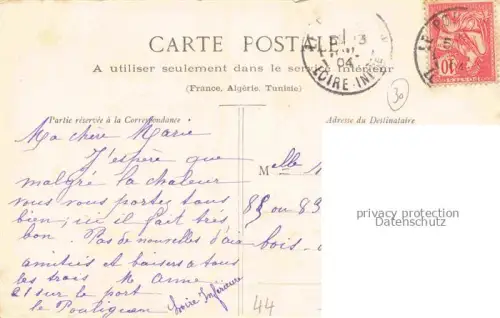 CARTE POSTALE
A utiliser seulement dans le service intérieur
(France, Algérie, Tunisie)
LOIRE-INF
04
10
30
Partie réservée à la Correspondance
Adresse du Destinataire
Ma chère Marie
J'espère que
malgré la chaleur
vous vous portez tous
bien; ici il fait très
bon. Pas de nouvelles d'
amitiés et baisers à tous
les trois M Anne
21 sur le port
le Pouliguen Loire Inférieure
Melle
85 ou 83
bois-
44
privacy protection
Datenschutz